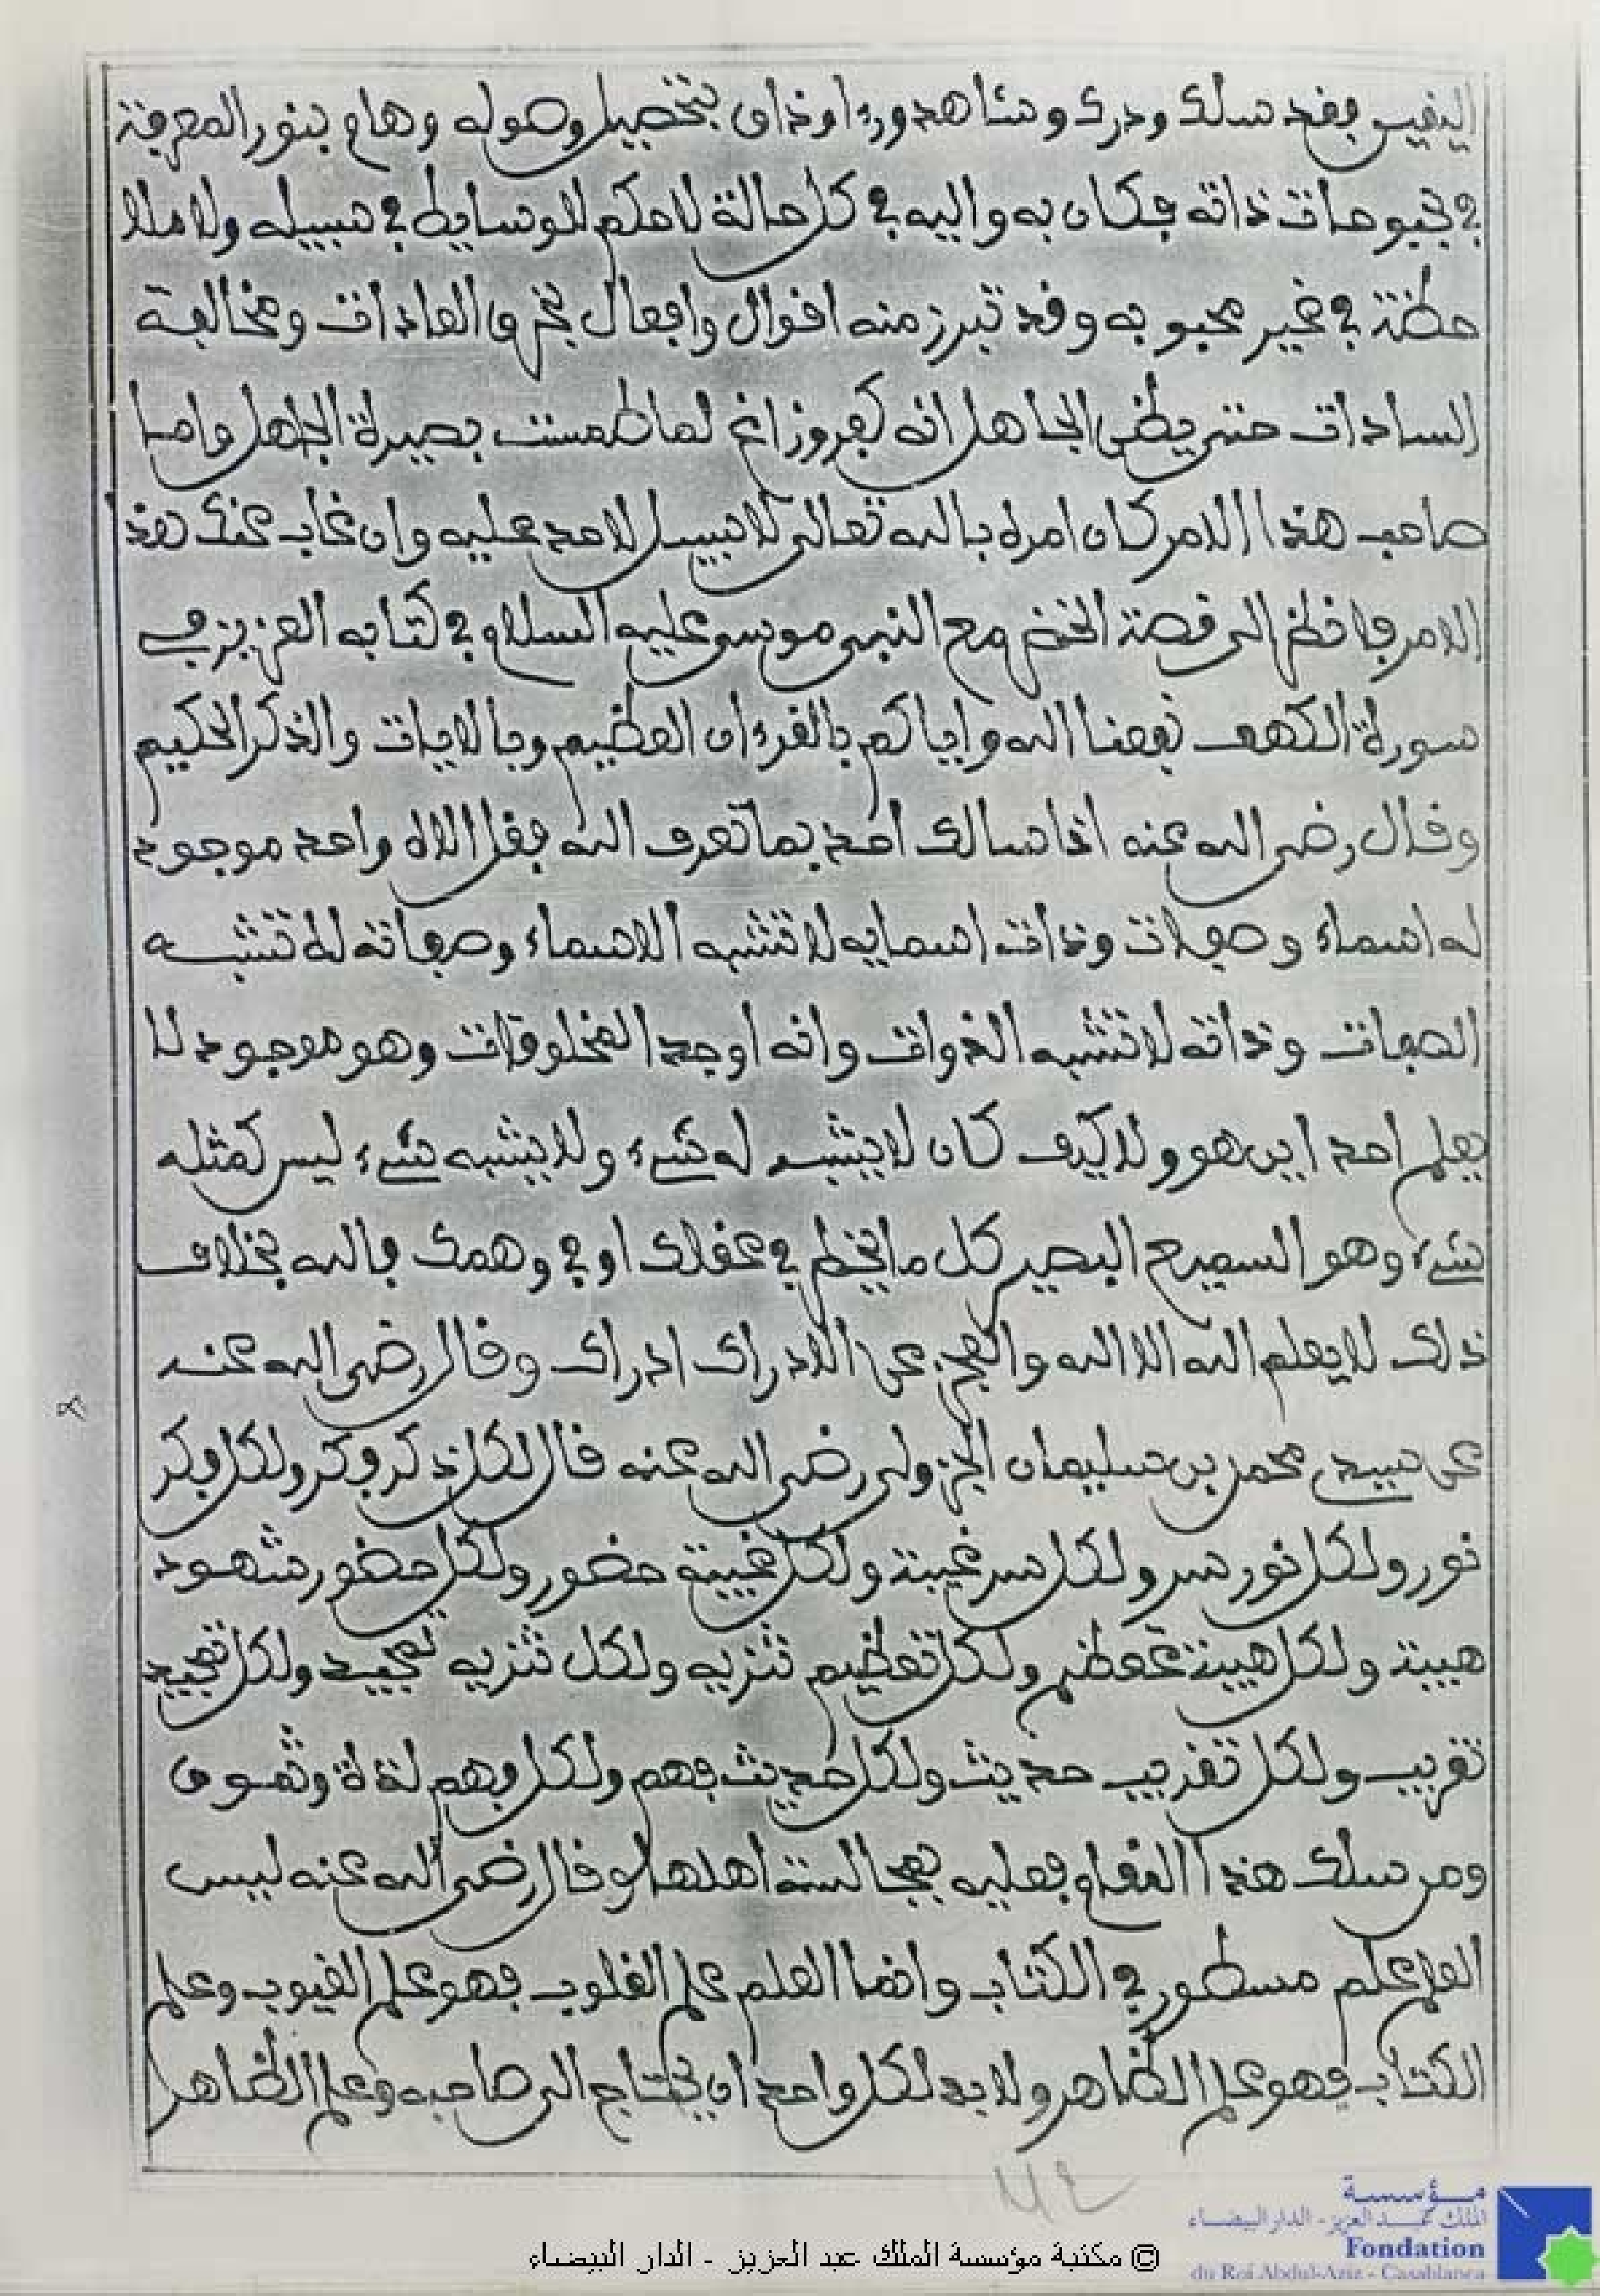 اليقين فقد سلك ودرك وشاهد وراء اوذاق بتحصيل وصوله وهام بنور المعرفة
في بحبوحات ذاته فكان به واليه في كل حالة لا حكم للوسايط في سبيله ولا ملا
حظة في غير محبوبه وقد تبرز منه اقوال وافعال بخرق العادات ومخالفة
السادات حتى يظن الجاهل انه كفر وزاغ لما طمست بصيرة الجاهل واما
صاحب هذا الامر كان امره بالله تعالى لا سبيل لاحد عليه وان غاب عنك هذا
الامر فانظر الى قصة الخضر مع النبي موسى عليه السلام في كتابه العزيز في
سورة الكهف نفعنا الله واياكم بالقرءان العظيم وبالايات والذكر الحكيم
وقال رضي الله عنه اذا سالك احد بما تعرف الله فقل الاله واحد موجود
له اسماء وصفات وذات اسمايه لا تشبه الاسماء وصفاته لا تشبه
الصفات وذاته لا تشبه الذوات وانه اوجد المخلوقات وهو موجود لا
يعلم احد اين هو ولا كيف كان لا يشبه له شيء ولا يشبه شيء ليس كمثله
شيء وهو السميع البصير كل ما يخطر في عقلك او في وهمك فالله بخلاف
ذلك لا يعلم الله الا الله والعجز عن الادراك ادراك وقال رضي الله عنه
عن سيدي محمد بن سليمان الجزولي رضي الله عنه قال لكل ذكر فكر ولكل فكر
نور ولكل نور سر ولكل سر غيبة ولكل غيبة حضور ولكل حضور شهود
هيبة ولكل هيبة تعظم ولكل تعظيم تنزيه ولكل تنزيه تمجيد ولكل تمجيد
تقريب ولكل تقريب حديث ولكل حديث فهم ولكل فهم لذة وشوق
ومن سلك هذا المقام فعليه بمجالسة اهلها وقال رضي الله عنه ليس
العلم علم مسطور في الكتاب وانما العلم علم القلوب فهو علم الغيوب وعلم
الكتاب فهو علم الظاهر ولا بد لكل واحد ان يحتاج الى صاحبه وعلم الظاهر
مؤسسة
الملك عبد العزيز - الدار البيضاء
Fondation
du Roi Abdul-Aziz - Casablanca
© مكتبة مؤسسة الملك عبد العزيز - الدار البيضاء